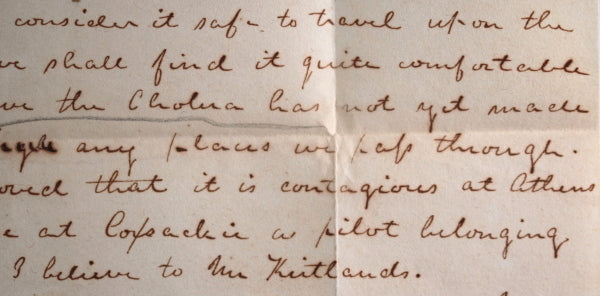 consider it safe to travel upon the
we shall find it quite comfortable
the Cholera has not yet made
any places we pass through.
oved that it is contagious at Athens
e at Coxsackie a pilot belonging
I believe to Mr Kirtlands.